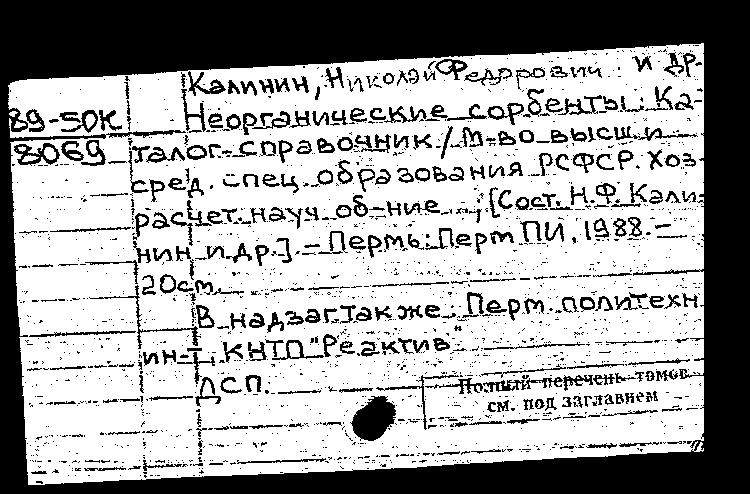 Калинин, Николай Федорович и др.
89-50К
Неорганические сорбенты: Ка-
8069
талог-справочник / М-во высш. и
сред. спец. образования РСФСР. Хоз-
расчет. науч. об-ние ...; [Сост. Н.Ф. Кали-
нин и др.]. - Пермь: Перм ПИ, 1988. -
20см.
В надзаг. также: Перм. политехн
ин-т, КНТП "Реактив"
ДСП.
Полный перечень томов
см. под заглавием